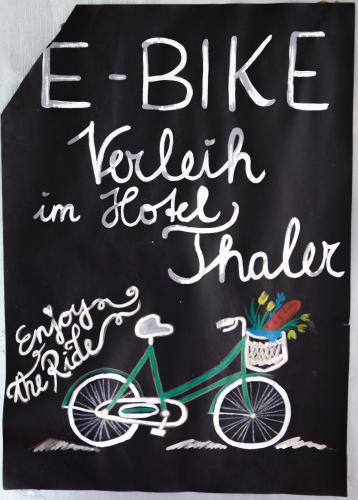 E-BIKE
Verleih
im Hotel
Thaler
Enjoy
the Ride